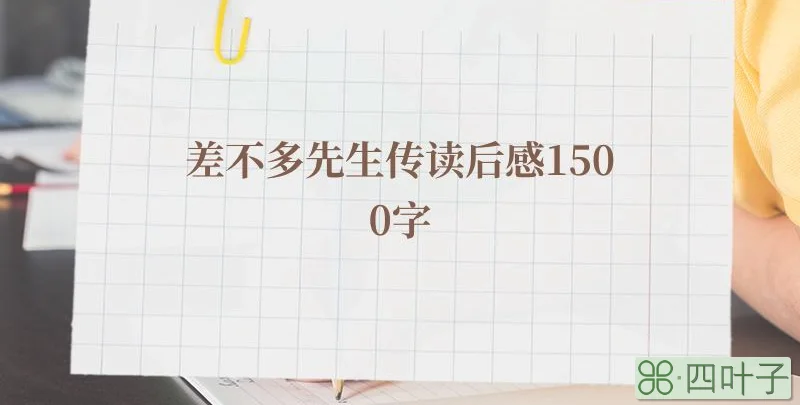 差不多先生传读后感150
0字
四叶子